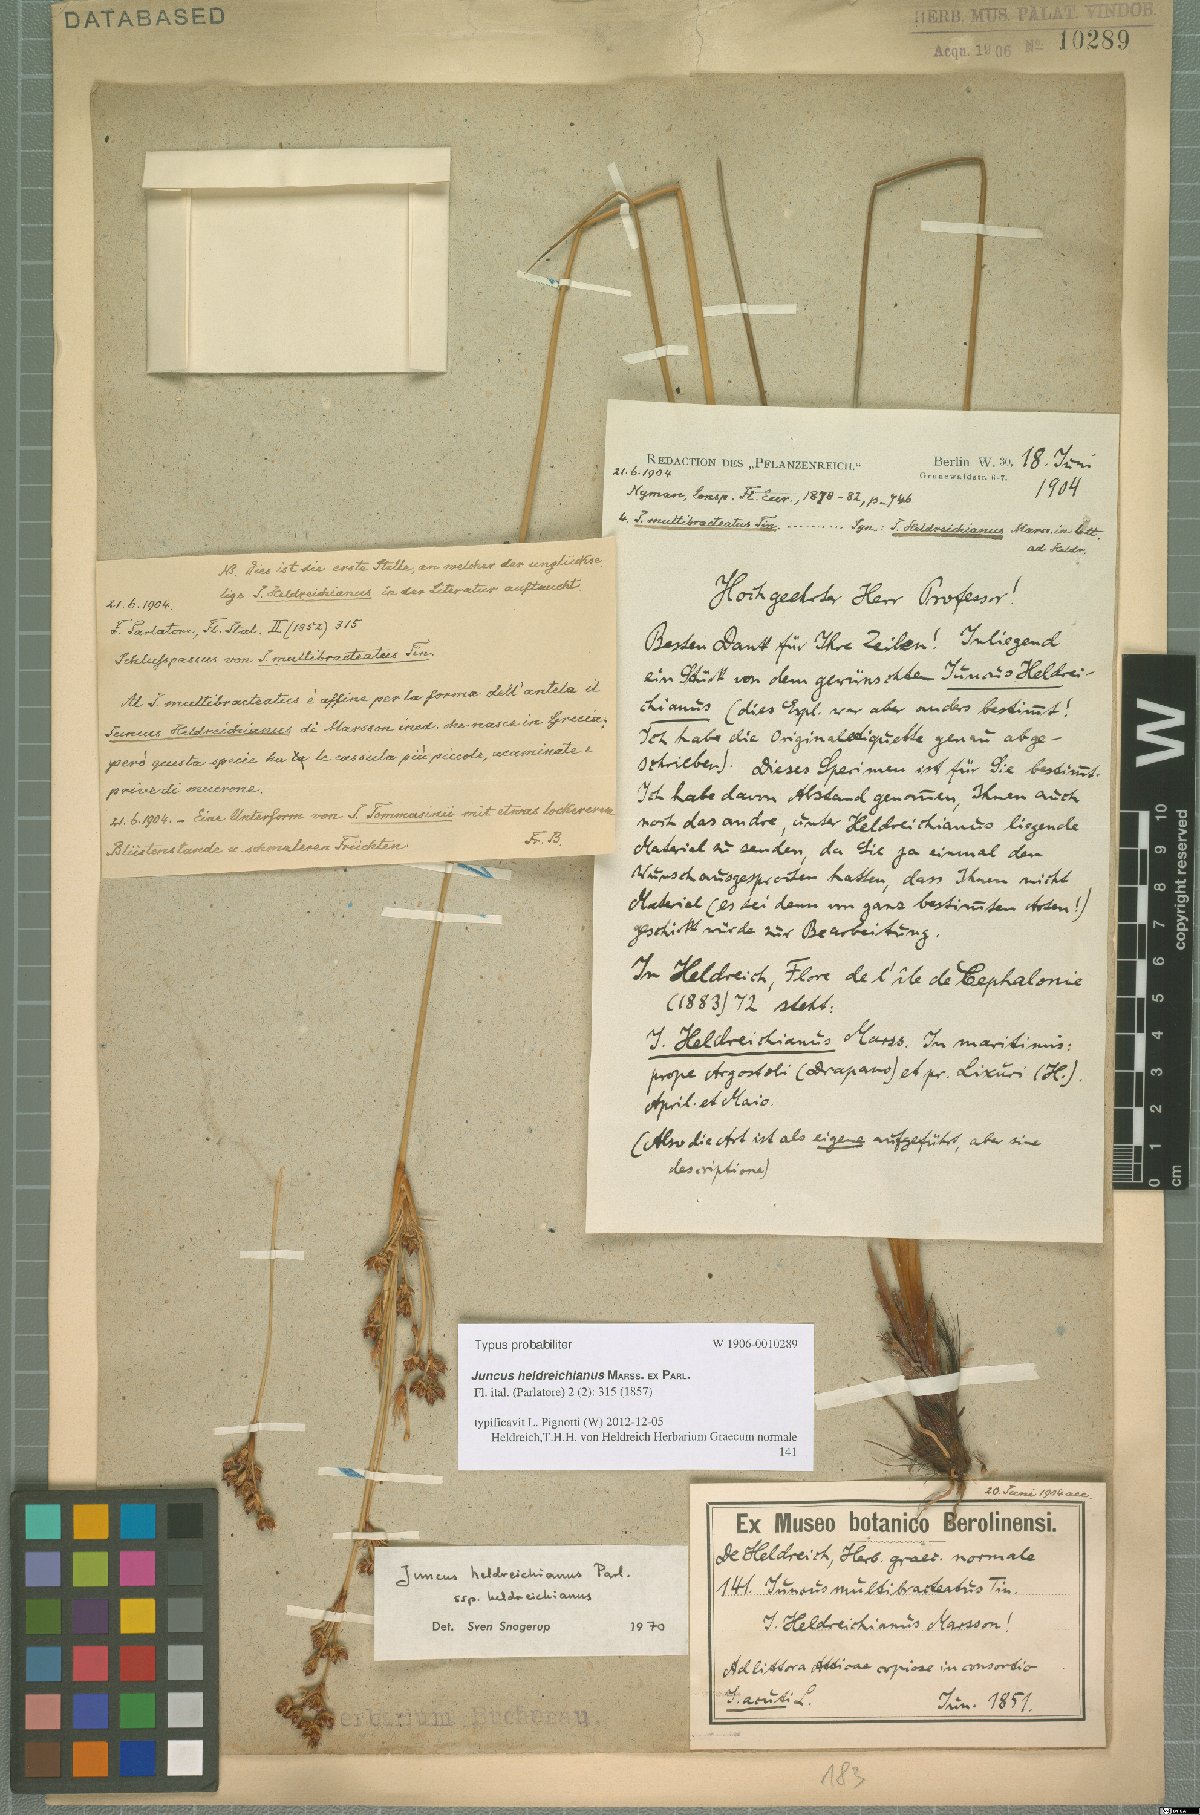 DATABASED
HERB. MUS. PALAT. VINDOB.
Acqu. 1906 No 10289
REDACTION DES „PFLANZENREICH."
Berlin W. 30, 18. Juni
Grunewaldstr. 6-7.
1904
21.6.1904
Nyman, Consp. Fl. Eur., 1878-82, p. 746
4. J. multibracteatus Tin. ......... Syn: J. Heldreichianus Marss. in litt.
ad Heldr.
Hochgeehrter Herr Professor!
Besten Dank für Ihre Zeilen! Inliegend
ein Stück von dem gewünschten Juncus Heldrei-
chianus (dies Expl. war aber anders bestimmt!
Ich habe die Originaletiquette genau abge-
schrieben). Dieses Specimen ist für Sie bestimmt.
Ich habe davon Abstand genommen, Ihnen auch
noch das andre, unter Heldreichianus liegende
Material zu senden, da Sie ja einmal den
Wunsch ausgesprochen hatten, dass Ihnen nicht
Material (es sei denn von ganz bestimmten Arten!)
geschickt würde zur Bearbeitung.
In Heldreich, Flore de l'île de Cephalonie
(1883) 72 steht:
J. Heldreichianus Marss. In maritimis:
prope Argostoli (Drapano) et pr. Lixuri (H.).
April. et Maio.
(Also die Art ist als eigene aufgeführt, aber sine
descriptione)
NB. Dies ist die erste Stelle, an welcher der unglückse-
lige J. Heldreichianus in der Literatur auftaucht.
21.6.1904.
F. Parlatore, Fl. Ital. II (1852) 315
Schlusspassus von J. multibracteatus Tin.
Al J. multibracteatus è affine per la forma dell'antela il
Juncus Heldreichianus di Marsson ined. che nasce in Grecia:
però questa specie ha le cassula più piccole, acuminate e
prive di mucrone.
21.6.1904. - Eine Unterform von J. Tommasinii mit etwas lockererem
Blütenstande u. schmaleren Früchten. Fr. B.
Typus probabiliter W 1906-0010289
Juncus heldreichianus MARSS. EX PARL.
Fl. ital. (Parlatore) 2 (2): 315 (1857)
typificavit L. Pignotti (W) 2012-12-05
Heldreich,T.H.H. von Heldreich Herbarium Graecum normale
141
Juncus heldreichianus Parl.
ssp. heldreichianus
Det. Sven Snogerup 1970
20. Juni 1904 acc.
Ex Museo botanico Berolinensi.
De Heldreich, Herb. graec. normale
141. Juncus multibracteatus Tin.
J. Heldreichianus Marsson!
Ad littora Atticae copiose in consortio
J. acuti L. Jun. 1851.
Herbarium Buchenau.
183
W
0 1 2 3 4 5 6 7 8 9 10
cm
copyright reserved